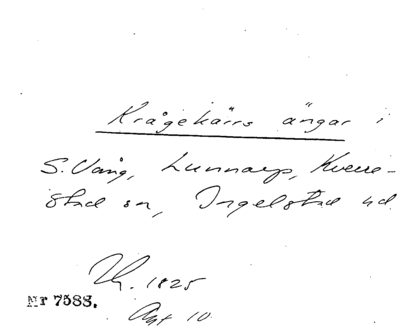 Krågekärrs ängar i
S. Vång, Lunnarp, Kverre-
stad sn, Ingelstad hd.
1825
Nr 7588.
Akt 10